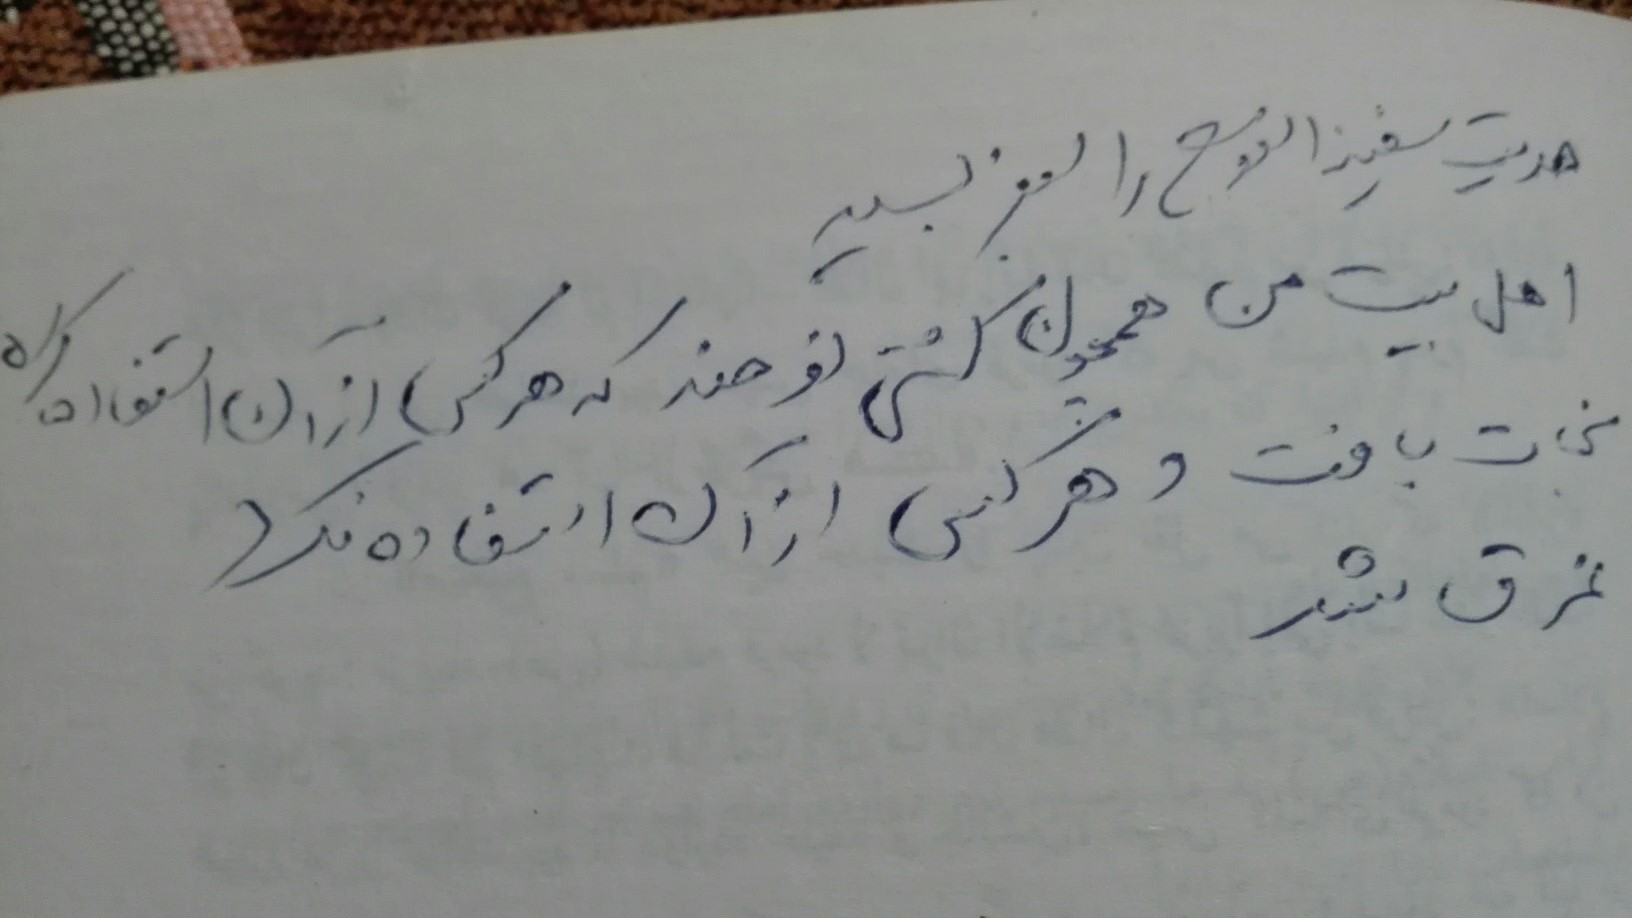 حدیث سفینه النوح را بنویسید
اهل بیت من همچون کشتی نوحند که هر کس از آن استفاده کرد
نجات یافت و هر کس از آن استفاده نکرد
غرق شد